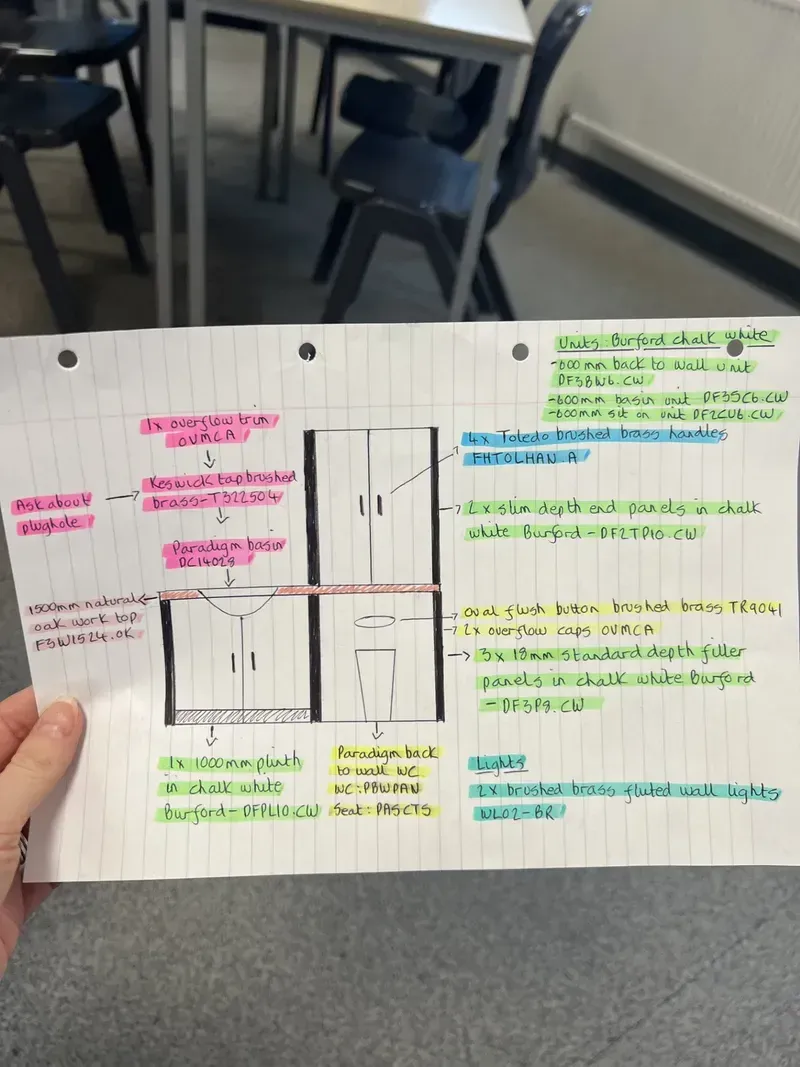 Units: Burford chalk white
-600mm back to wall unit
DF3BW6.CW
-600mm basin unit DF35C6.CW
-600mm sit on unit DF2CU6.CW
1x overflow trim
OVMCA
Keswick tap brushed
brass-T322504
Ask about
plughole
Paradigm basin
DC14028
1500mm natural
oak work top
F3W1524.OK
4x Toledo brushed brass handles
FHTOLHAN.A
2x slim depth end panels in chalk
white Burford-DF2TP10.CW
oval flush button brushed brass TR9041
2x overflow caps OVMCA
3x 18mm standard depth filler
panels in chalk white Burford
-DF3P8.CW
1x 1000mm plinth
in chalk white
Burford-DFPL10.CW
Paradigm back
to wall WC
WC:PBWPAN
Seat: PASCTS
Lights
2x brushed brass fluted wall lights
WL02-BR